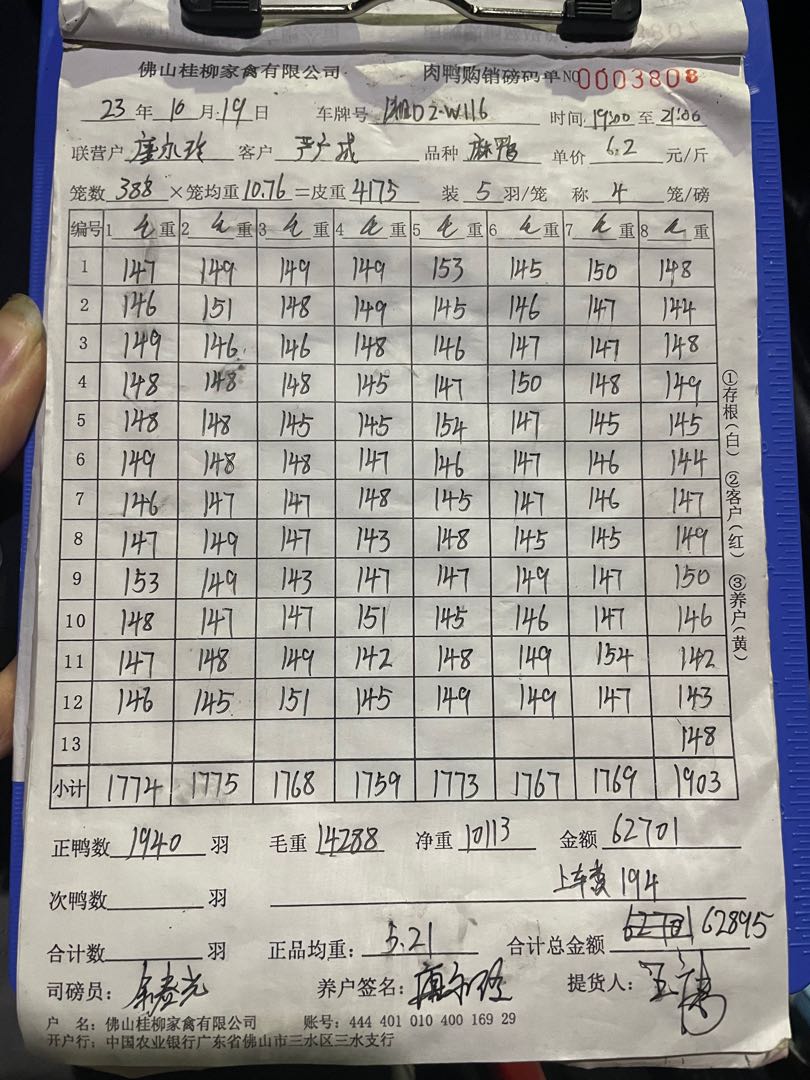 佛山桂柳家禽有限公司 肉鸭购销磅码单 NO 0003808
23 年 10 月 19 日 车牌号 D2-W116 时间 19:00 至 21:06
联营户 客户 严广成 品种 麻鸭 单价 6.2 元/斤
笼数 388 ×笼均重 10.76 =皮重 4175 装 5 羽/笼 称 4 笼/磅
编号 1 毛 重 2 毛 重 3 毛 重 4 毛 重 5 毛 重 6 毛 重 7 毛 重 8 毛 重
1 147 149 149 149 153 145 150 148
2 146 151 148 149 145 146 147 144
3 149 146 146 148 146 147 147 148
4 148 148 148 145 147 150 148 149
5 148 148 145 145 154 147 145 145
6 149 148 148 147 146 147 146 144
7 146 147 147 148 145 147 146 147
8 147 149 147 143 148 145 145 149
9 153 149 143 147 147 149 147 150
10 148 147 147 151 145 146 147 146
11 147 148 149 142 148 149 154 142
12 146 145 151 145 149 149 147 143
13 148
小计 1774 1775 1768 1759 1773 1767 1769 1903
①存根(白) ②客户(红) ③养户(黄)
正鸭数 1940 羽 毛重 14288 净重 10113 金额 62701
上车费 194
次鸭数 羽
合计数 羽 正品均重: 5.21 合计总金额 62701 62895
司磅员: 养户签名: 提货人:
户 名: 佛山桂柳家禽有限公司 账号: 444 401 010 400 169 29
开户行: 中国农业银行广东省佛山市三水区三水支行